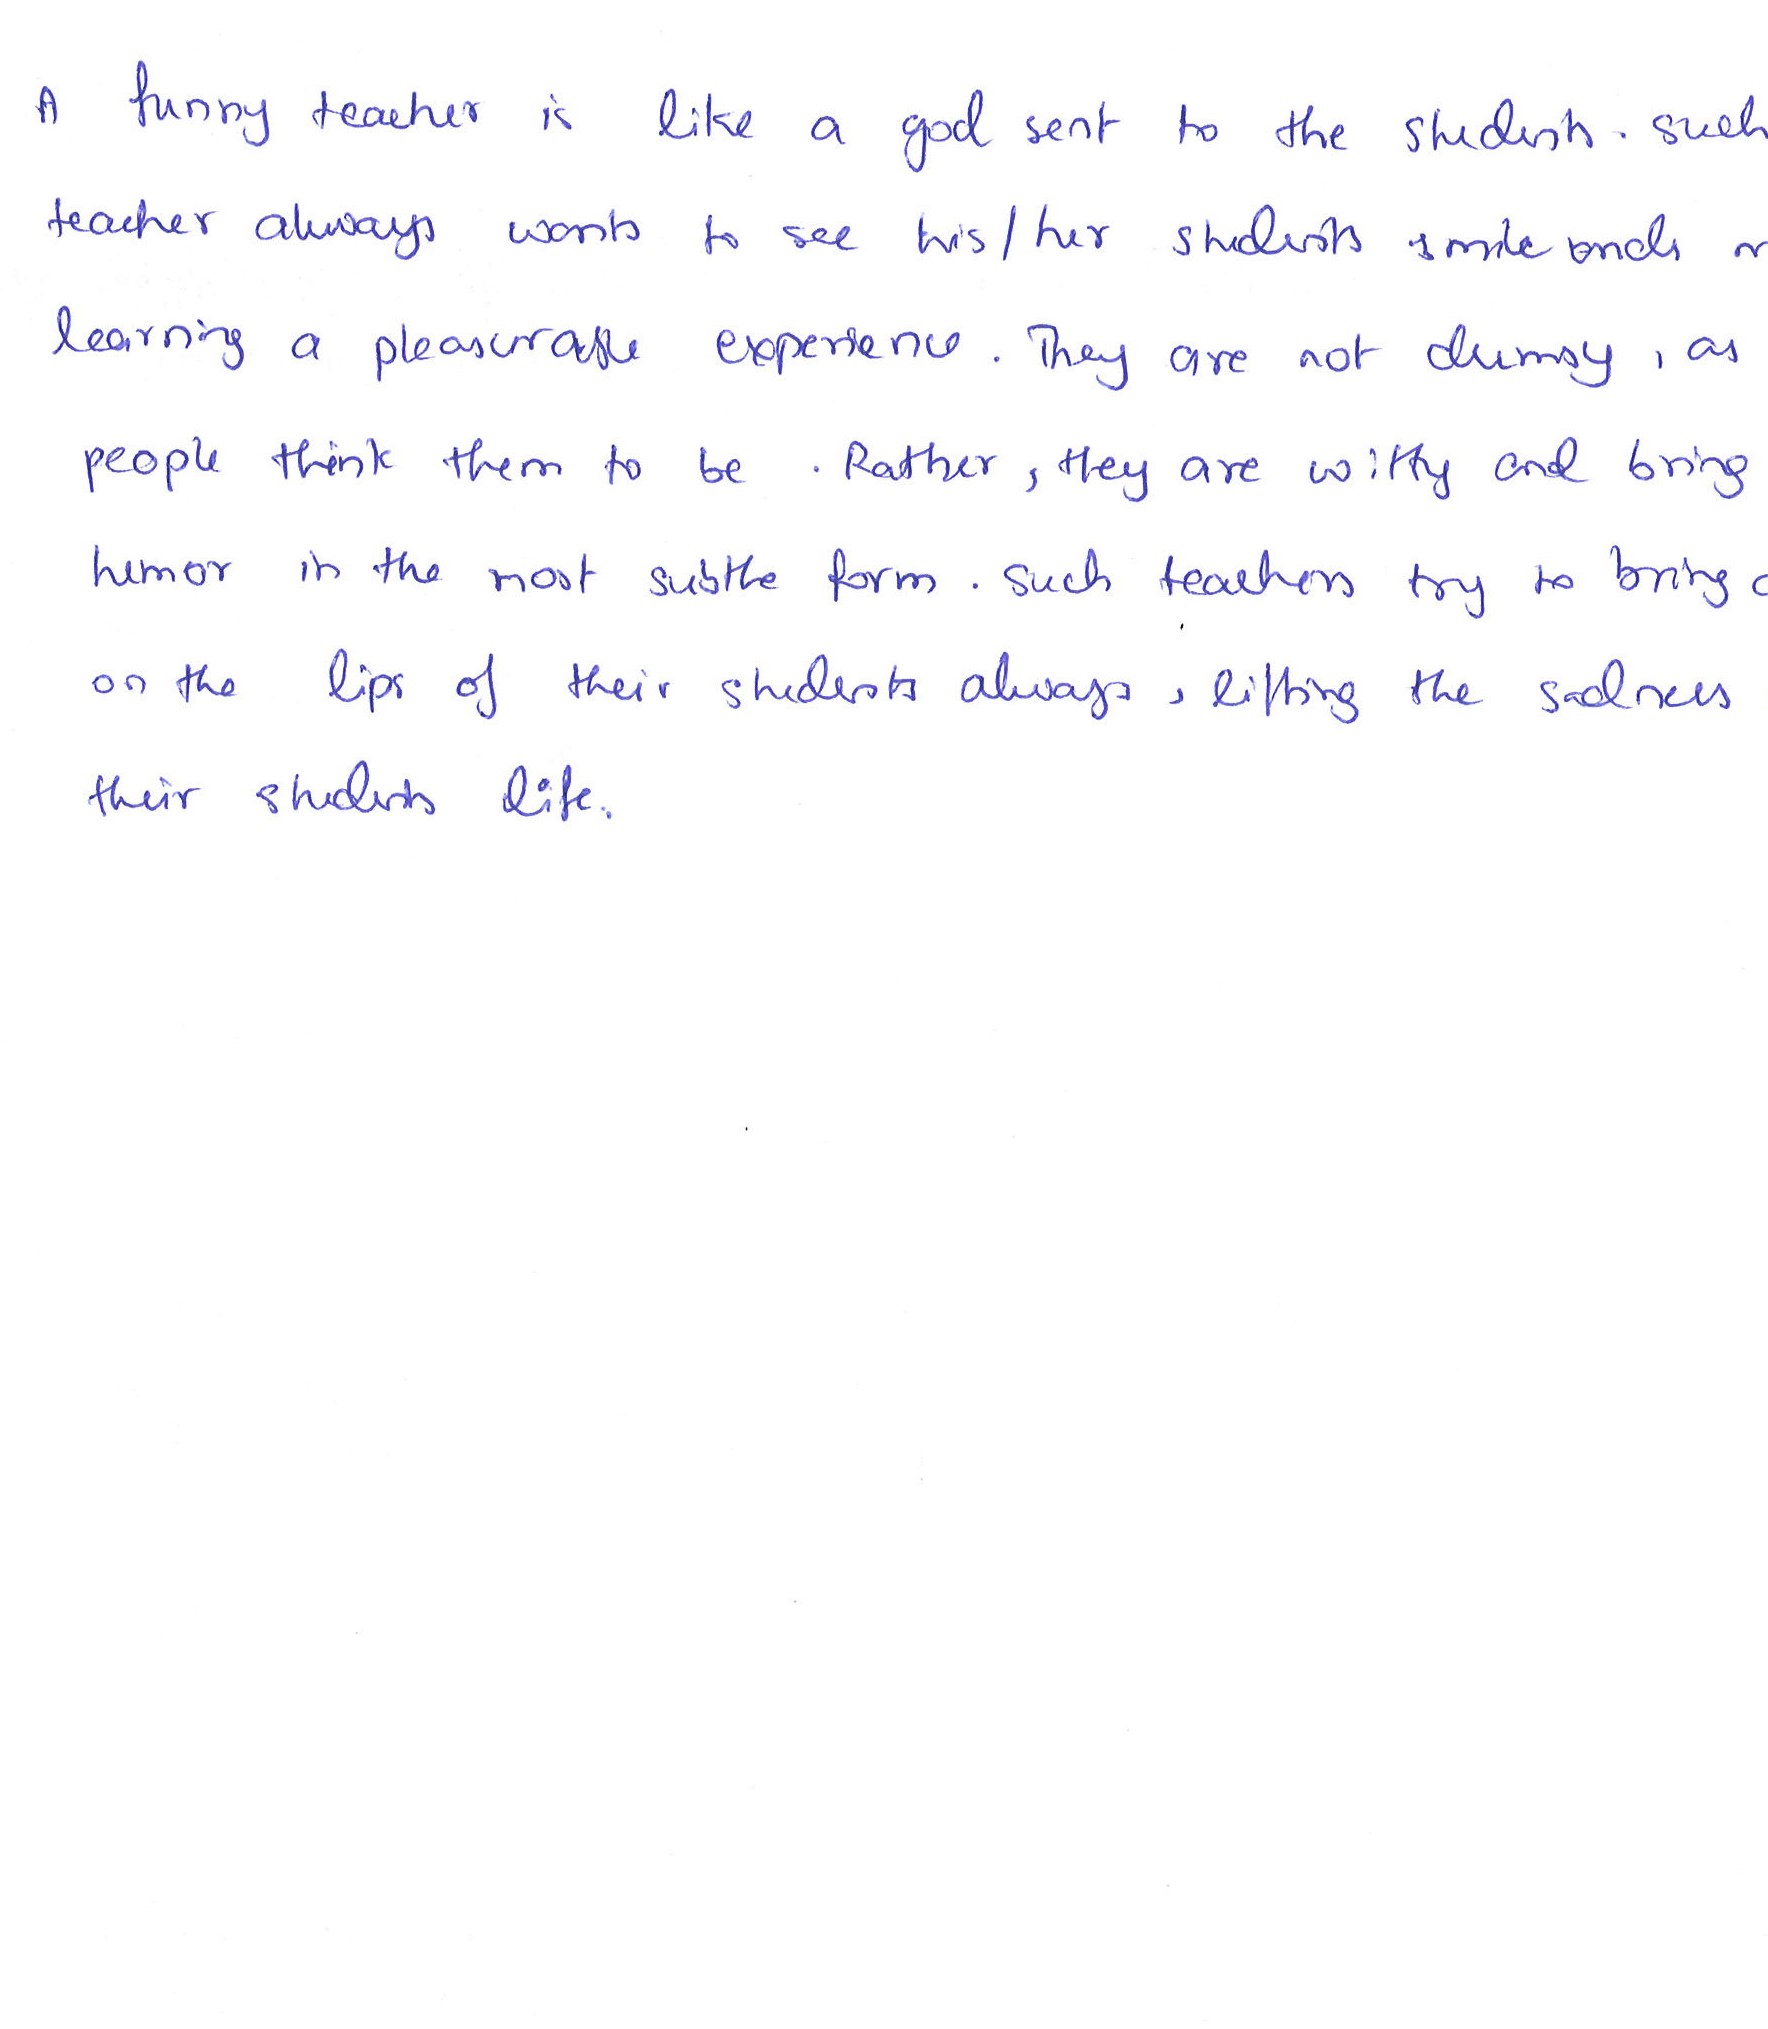 A funny teacher is like a god sent to the students. such
teacher always wants to see his/her students smile and
learning a pleasurable experience. They are not clumsy, as
people think them to be. Rather, they are witty and bring
humor in the most subtle form. such teachers try to bring
on the lips of their students always, lifting the sadness
their students life.